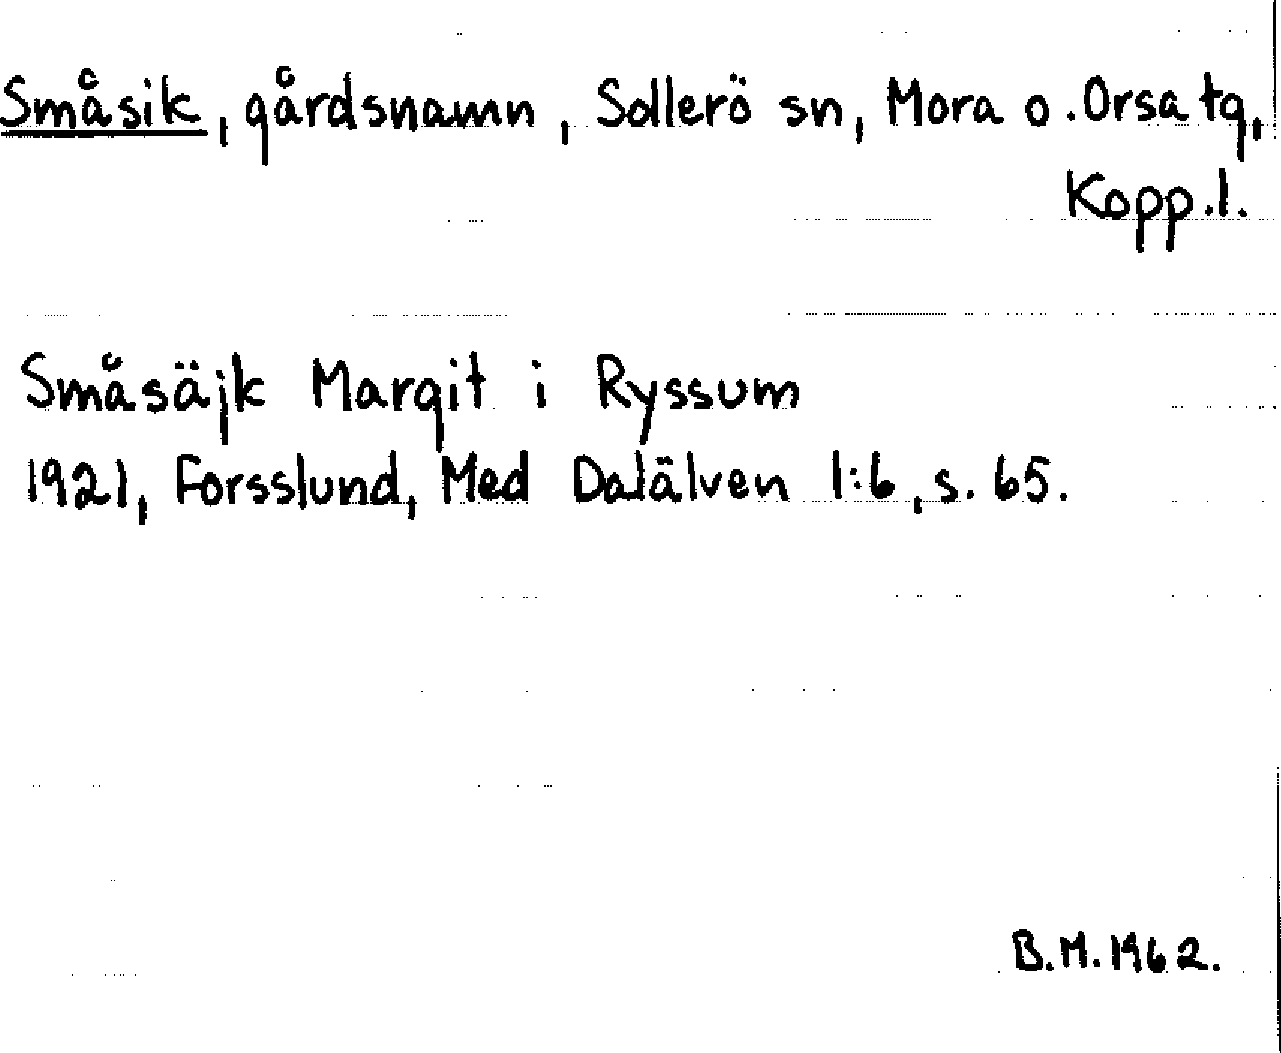 Småsik, gårdsnamn, Sollerö sn, Mora o. Orsa tg,
Kopp.l.
Småsäjk Margit i Ryssum
1921, Forsslund, Med Dalälven 1:6, s. 65.
B.M. 1962.